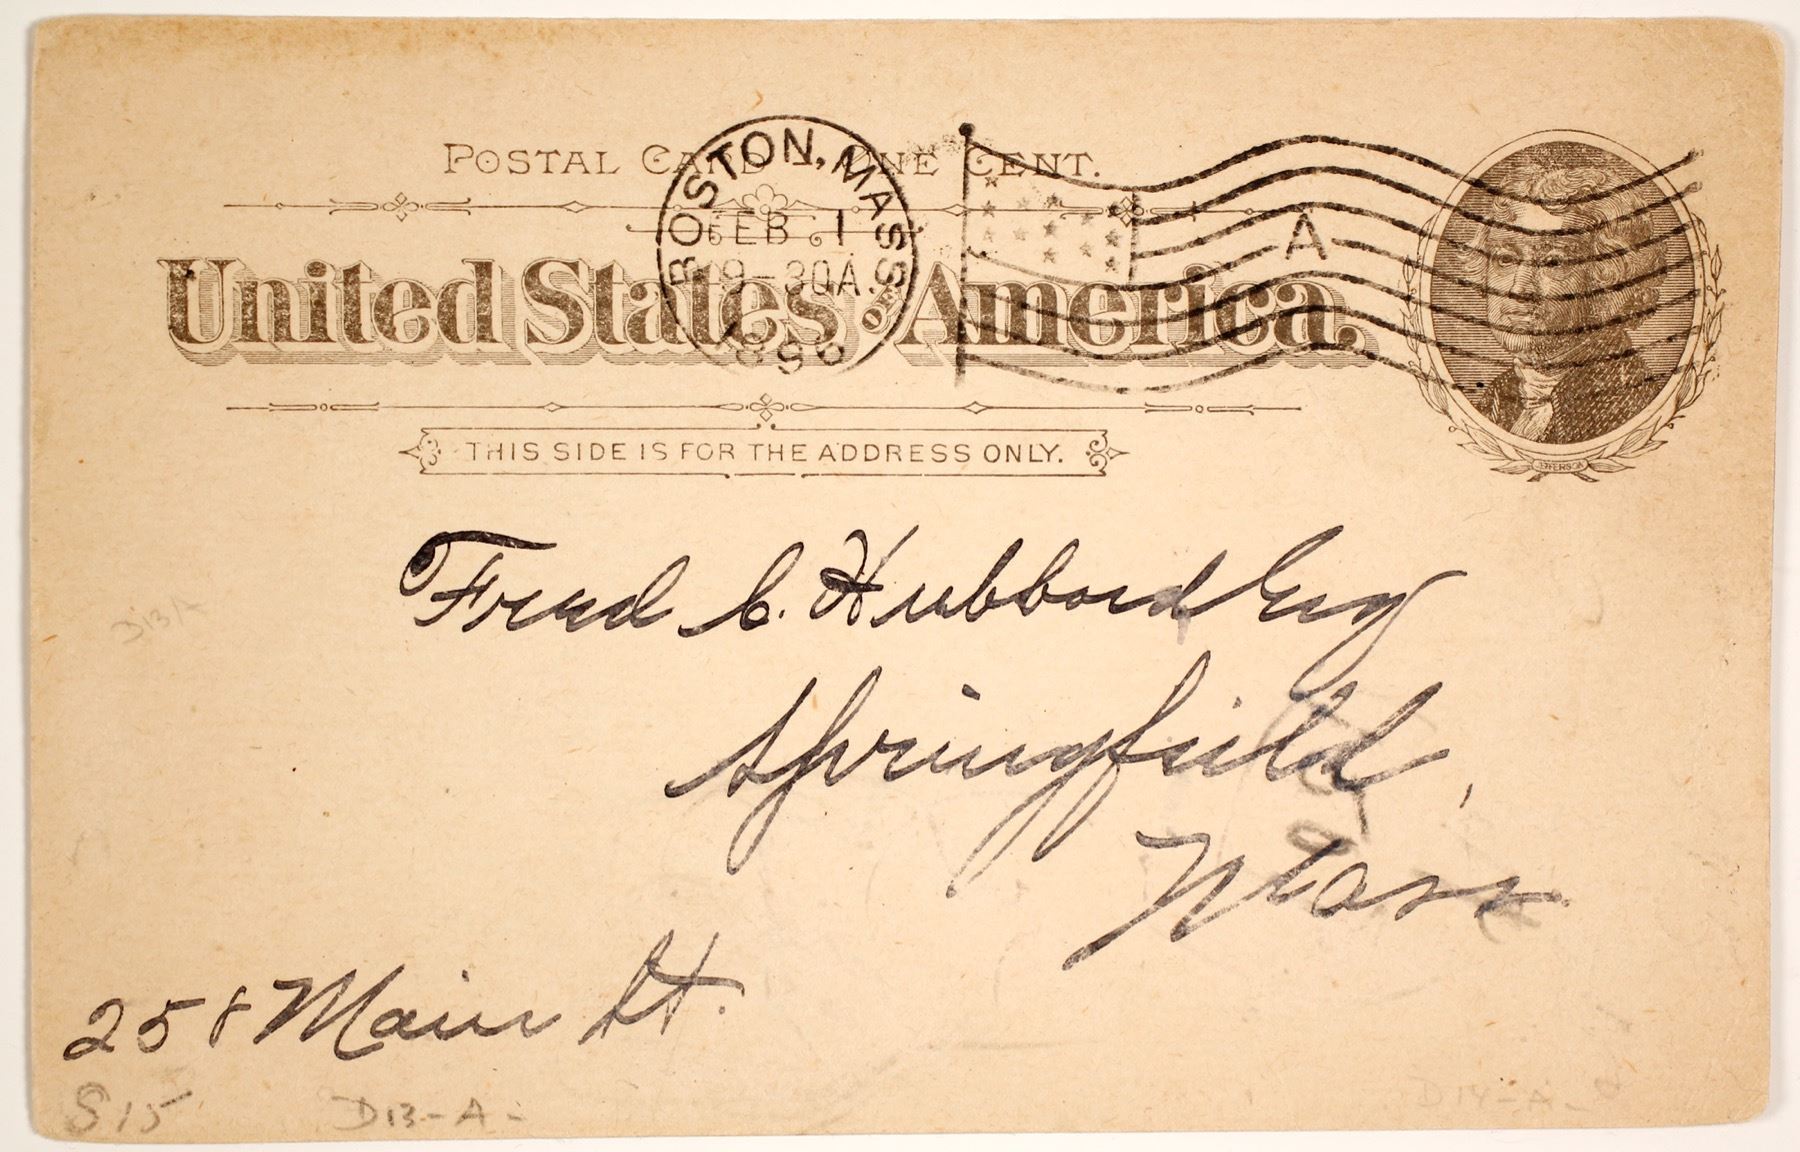 POSTAL CARD — ONE CENT.
United States of America.
BOSTON, MASS
FEB 1
9-30A.
1896
A
JEFFERSON
THIS SIDE IS FOR THE ADDRESS ONLY.
Fred C. Hubbard Esq
Springfield,
Mass
258 Main St.
D13A
S15
D13-A-
D14-A-